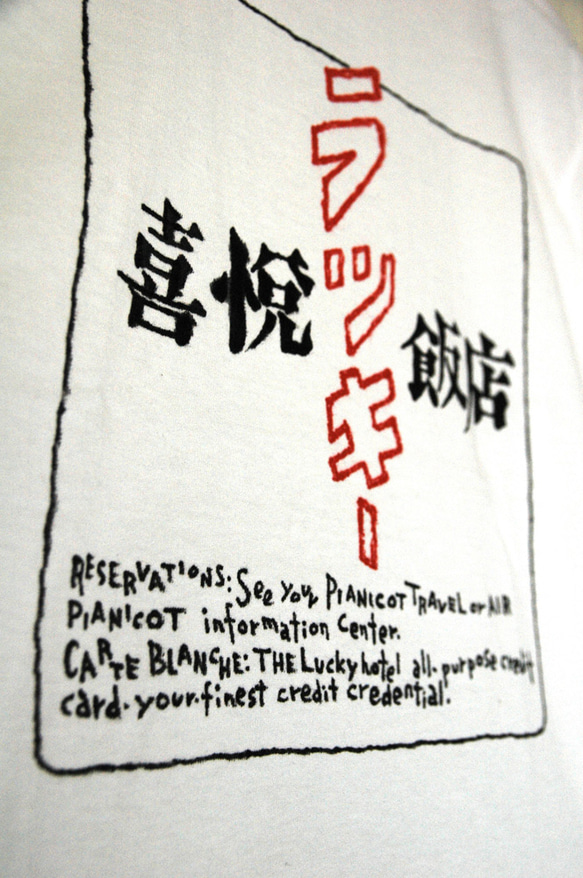 ラッキー
喜悦 飯店
RESERVATIONS: See your PIANICOT TRAVEL or AIR
PIANICOT information Center.
CARTE BLANCHE: THE Lucky hotel all-purpose credit
card. your finest credit credential.